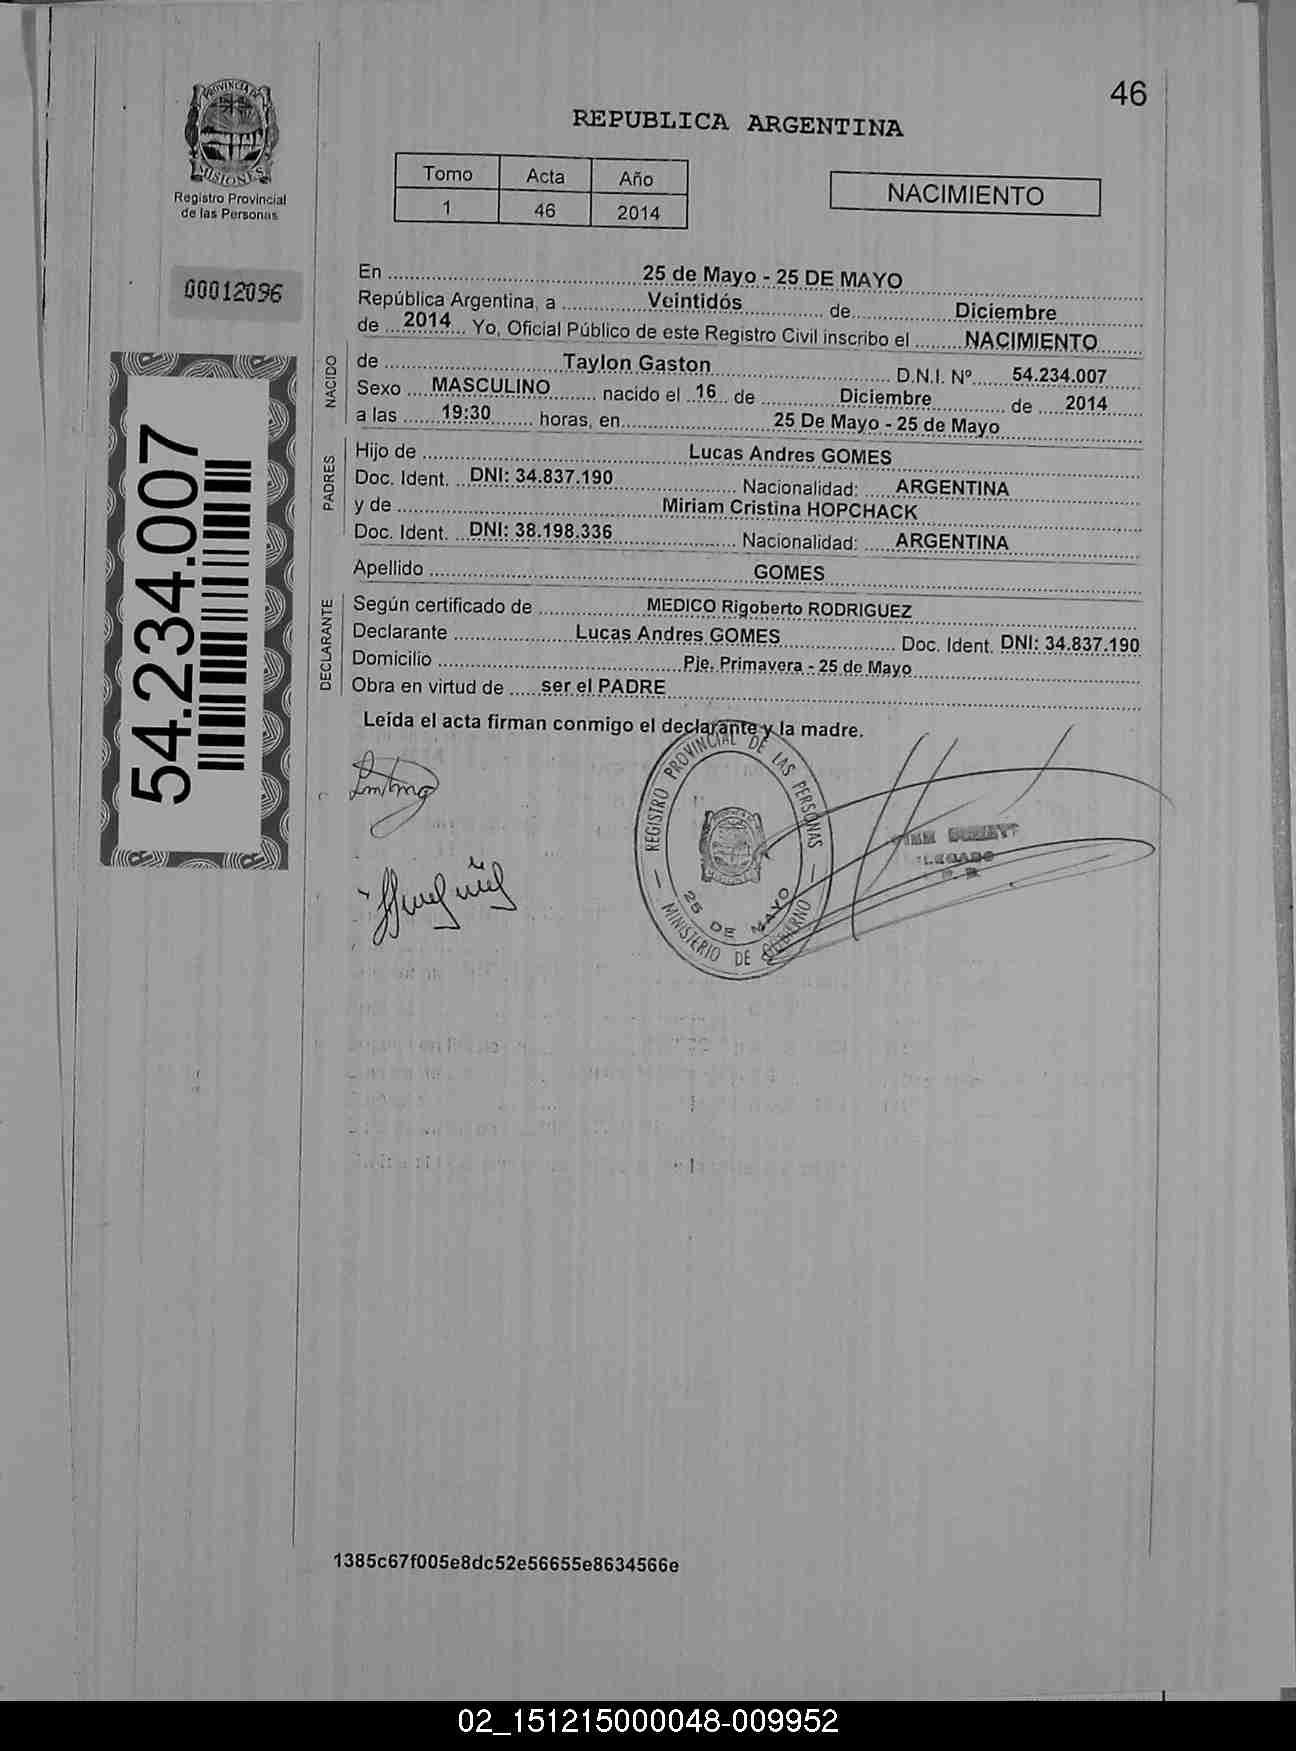 46
PROVINCIA DE
MISIONES
Registro Provincial
de las Personas
REPUBLICA ARGENTINA
Tomo Acta Año
1 46 2014
NACIMIENTO
00012096
54.234.007
En 25 de Mayo - 25 DE MAYO
República Argentina, a Veintidós de Diciembre
de 2014 Yo, Oficial Público de este Registro Civil inscribo el NACIMIENTO
NACIDO
de Taylon Gaston D.N.I. Nº 54.234.007
Sexo MASCULINO nacido el 16 de Diciembre de 2014
a las 19:30 horas, en 25 De Mayo - 25 de Mayo
PADRES
Hijo de Lucas Andres GOMES
Doc. Ident. DNI: 34.837.190 Nacionalidad: ARGENTINA
y de Miriam Cristina HOPCHACK
Doc. Ident. DNI: 38.198.336 Nacionalidad: ARGENTINA
Apellido GOMES
DECLARANTE
Según certificado de MEDICO Rigoberto RODRIGUEZ
Declarante Lucas Andres GOMES Doc. Ident. DNI: 34.837.190
Domicilio Pje. Primavera - 25 de Mayo
Obra en virtud de ser el PADRE
Leída el acta firman conmigo el declarante y la madre.
REGISTRO PROVINCIAL DE LAS PERSONAS
25 DE MAYO
MINISTERIO DE GOBIERNO
1385c67f005e8dc52e56655e8634566e
02_151215000048-009952